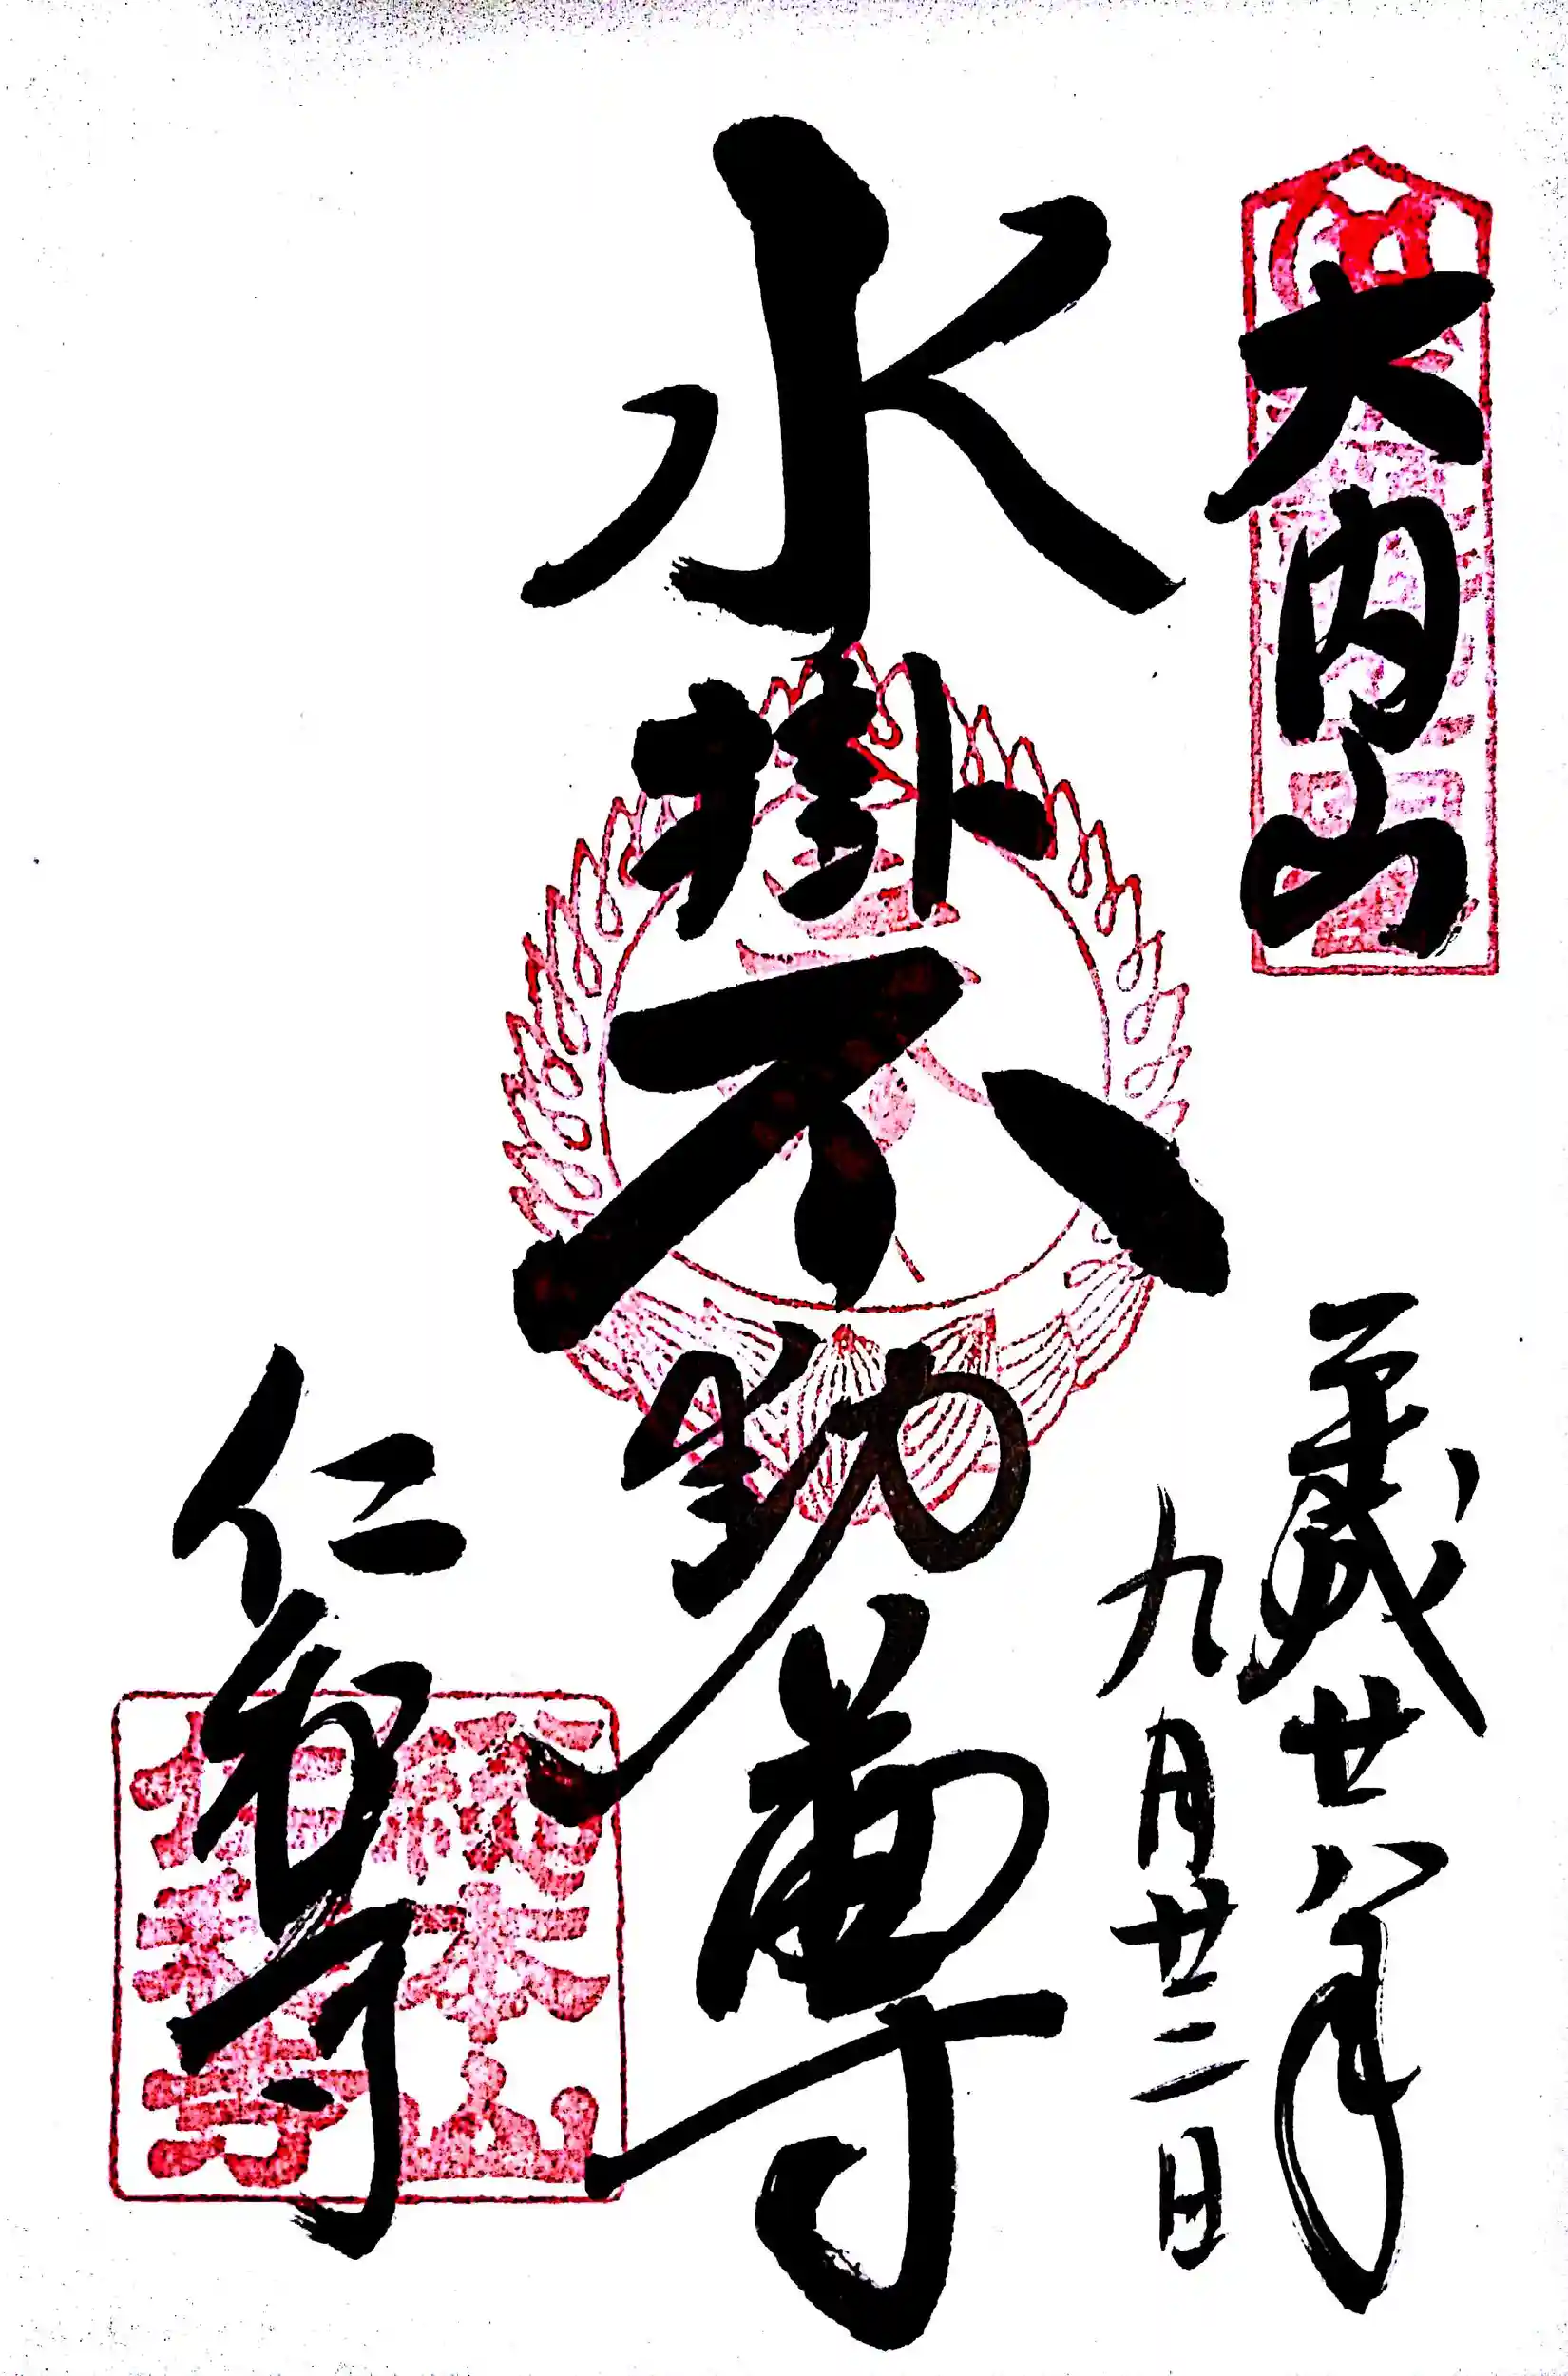 大内山
平成廿八年
九月廿二日
水掛不動尊
仁和寺
総本山
仁和寺